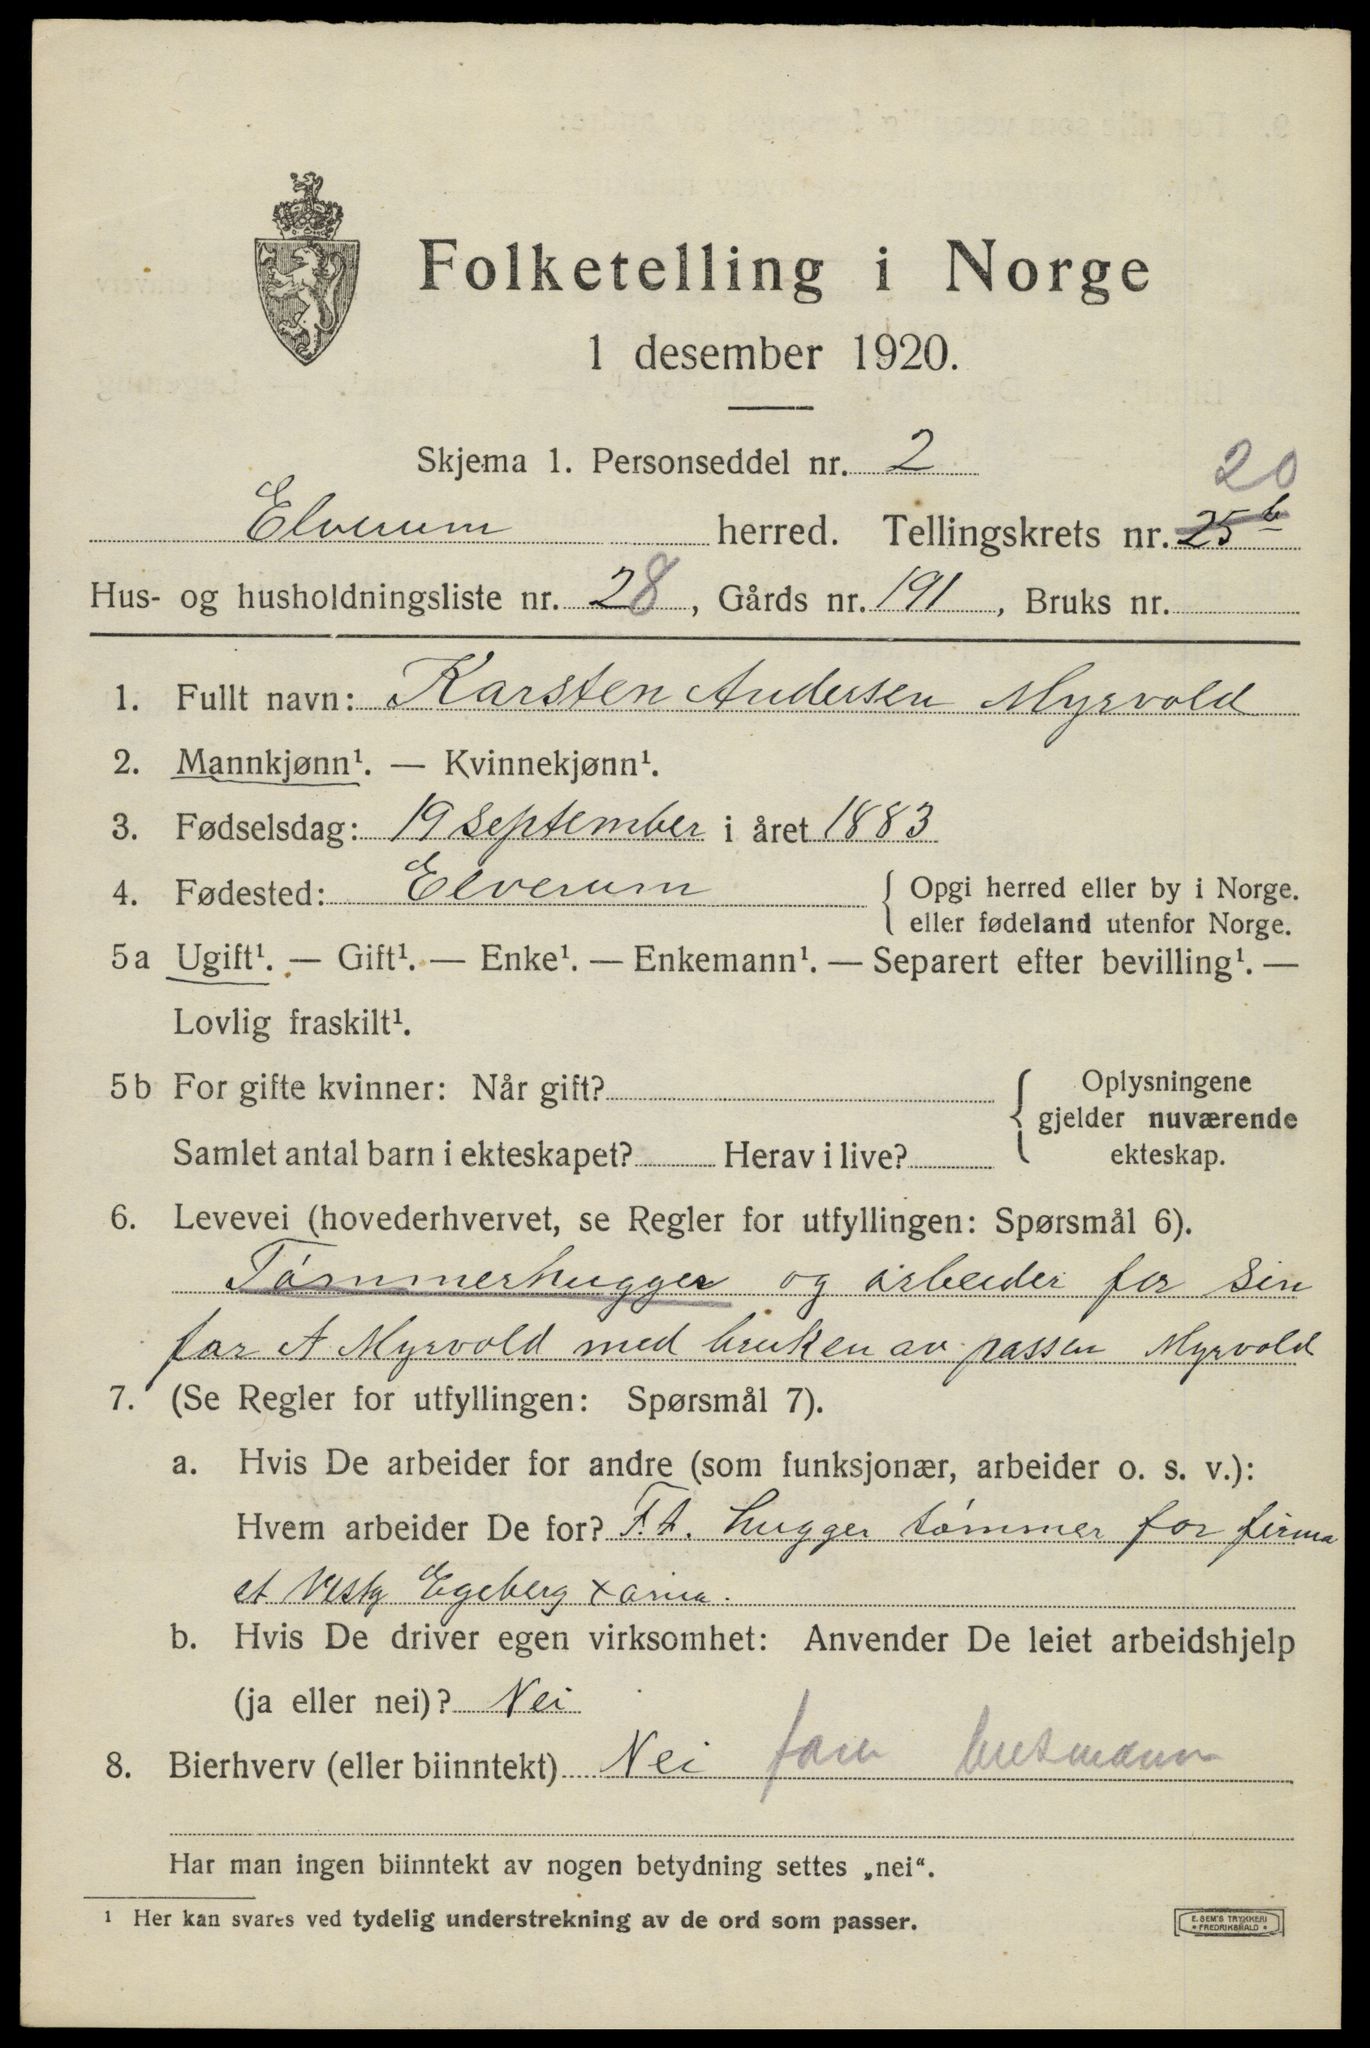 Folketelling i Norge
1 desember 1920.
Skjema 1. Personseddel nr. 2
20
Elverum herred. Tellingskrets nr. 25 b
Hus- og husholdningsliste nr. 28, Gårds nr. 191, Bruks nr.
1. Fullt navn: Karsten Andersen Myrvold
2. Mannkjønn¹. — Kvinnekjønn¹.
3. Fødselsdag: 19 september i året 1883
4. Fødested: Elverum { Opgi herred eller by i Norge.
eller fødeland utenfor Norge.
5a Ugift¹. — Gift¹. — Enke¹. — Enkemann¹. — Separert efter bevilling¹. —
Lovlig fraskilt¹.
5b For gifte kvinner: Når gift? { Oplysningene
gjelder nuværende
Samlet antal barn i ekteskapet? Herav i live? ekteskap.
6. Levevei (hovederhvervet, se Regler for utfyllingen: Spørsmål 6).
Tømmerhugger og arbeider for sin
far A Myrvold med bruken av Myrvold
7. (Se Regler for utfyllingen: Spørsmål 7).
a. Hvis De arbeider for andre (som funksjonær, arbeider o. s. v.):
Hvem arbeider De for? F.t. hugger tømmer for firma
Egeberg
b. Hvis De driver egen virksomhet: Anvender De leiet arbeidshjelp
(ja eller nei)? Nei
8. Bierhverv (eller biinntekt) Nei
Har man ingen biinntekt av nogen betydning settes „nei“.
¹ Her kan svares ved tydelig understrekning av de ord som passer.
E. SEM'S TRYKKERI
• FREDRIKSHALD •